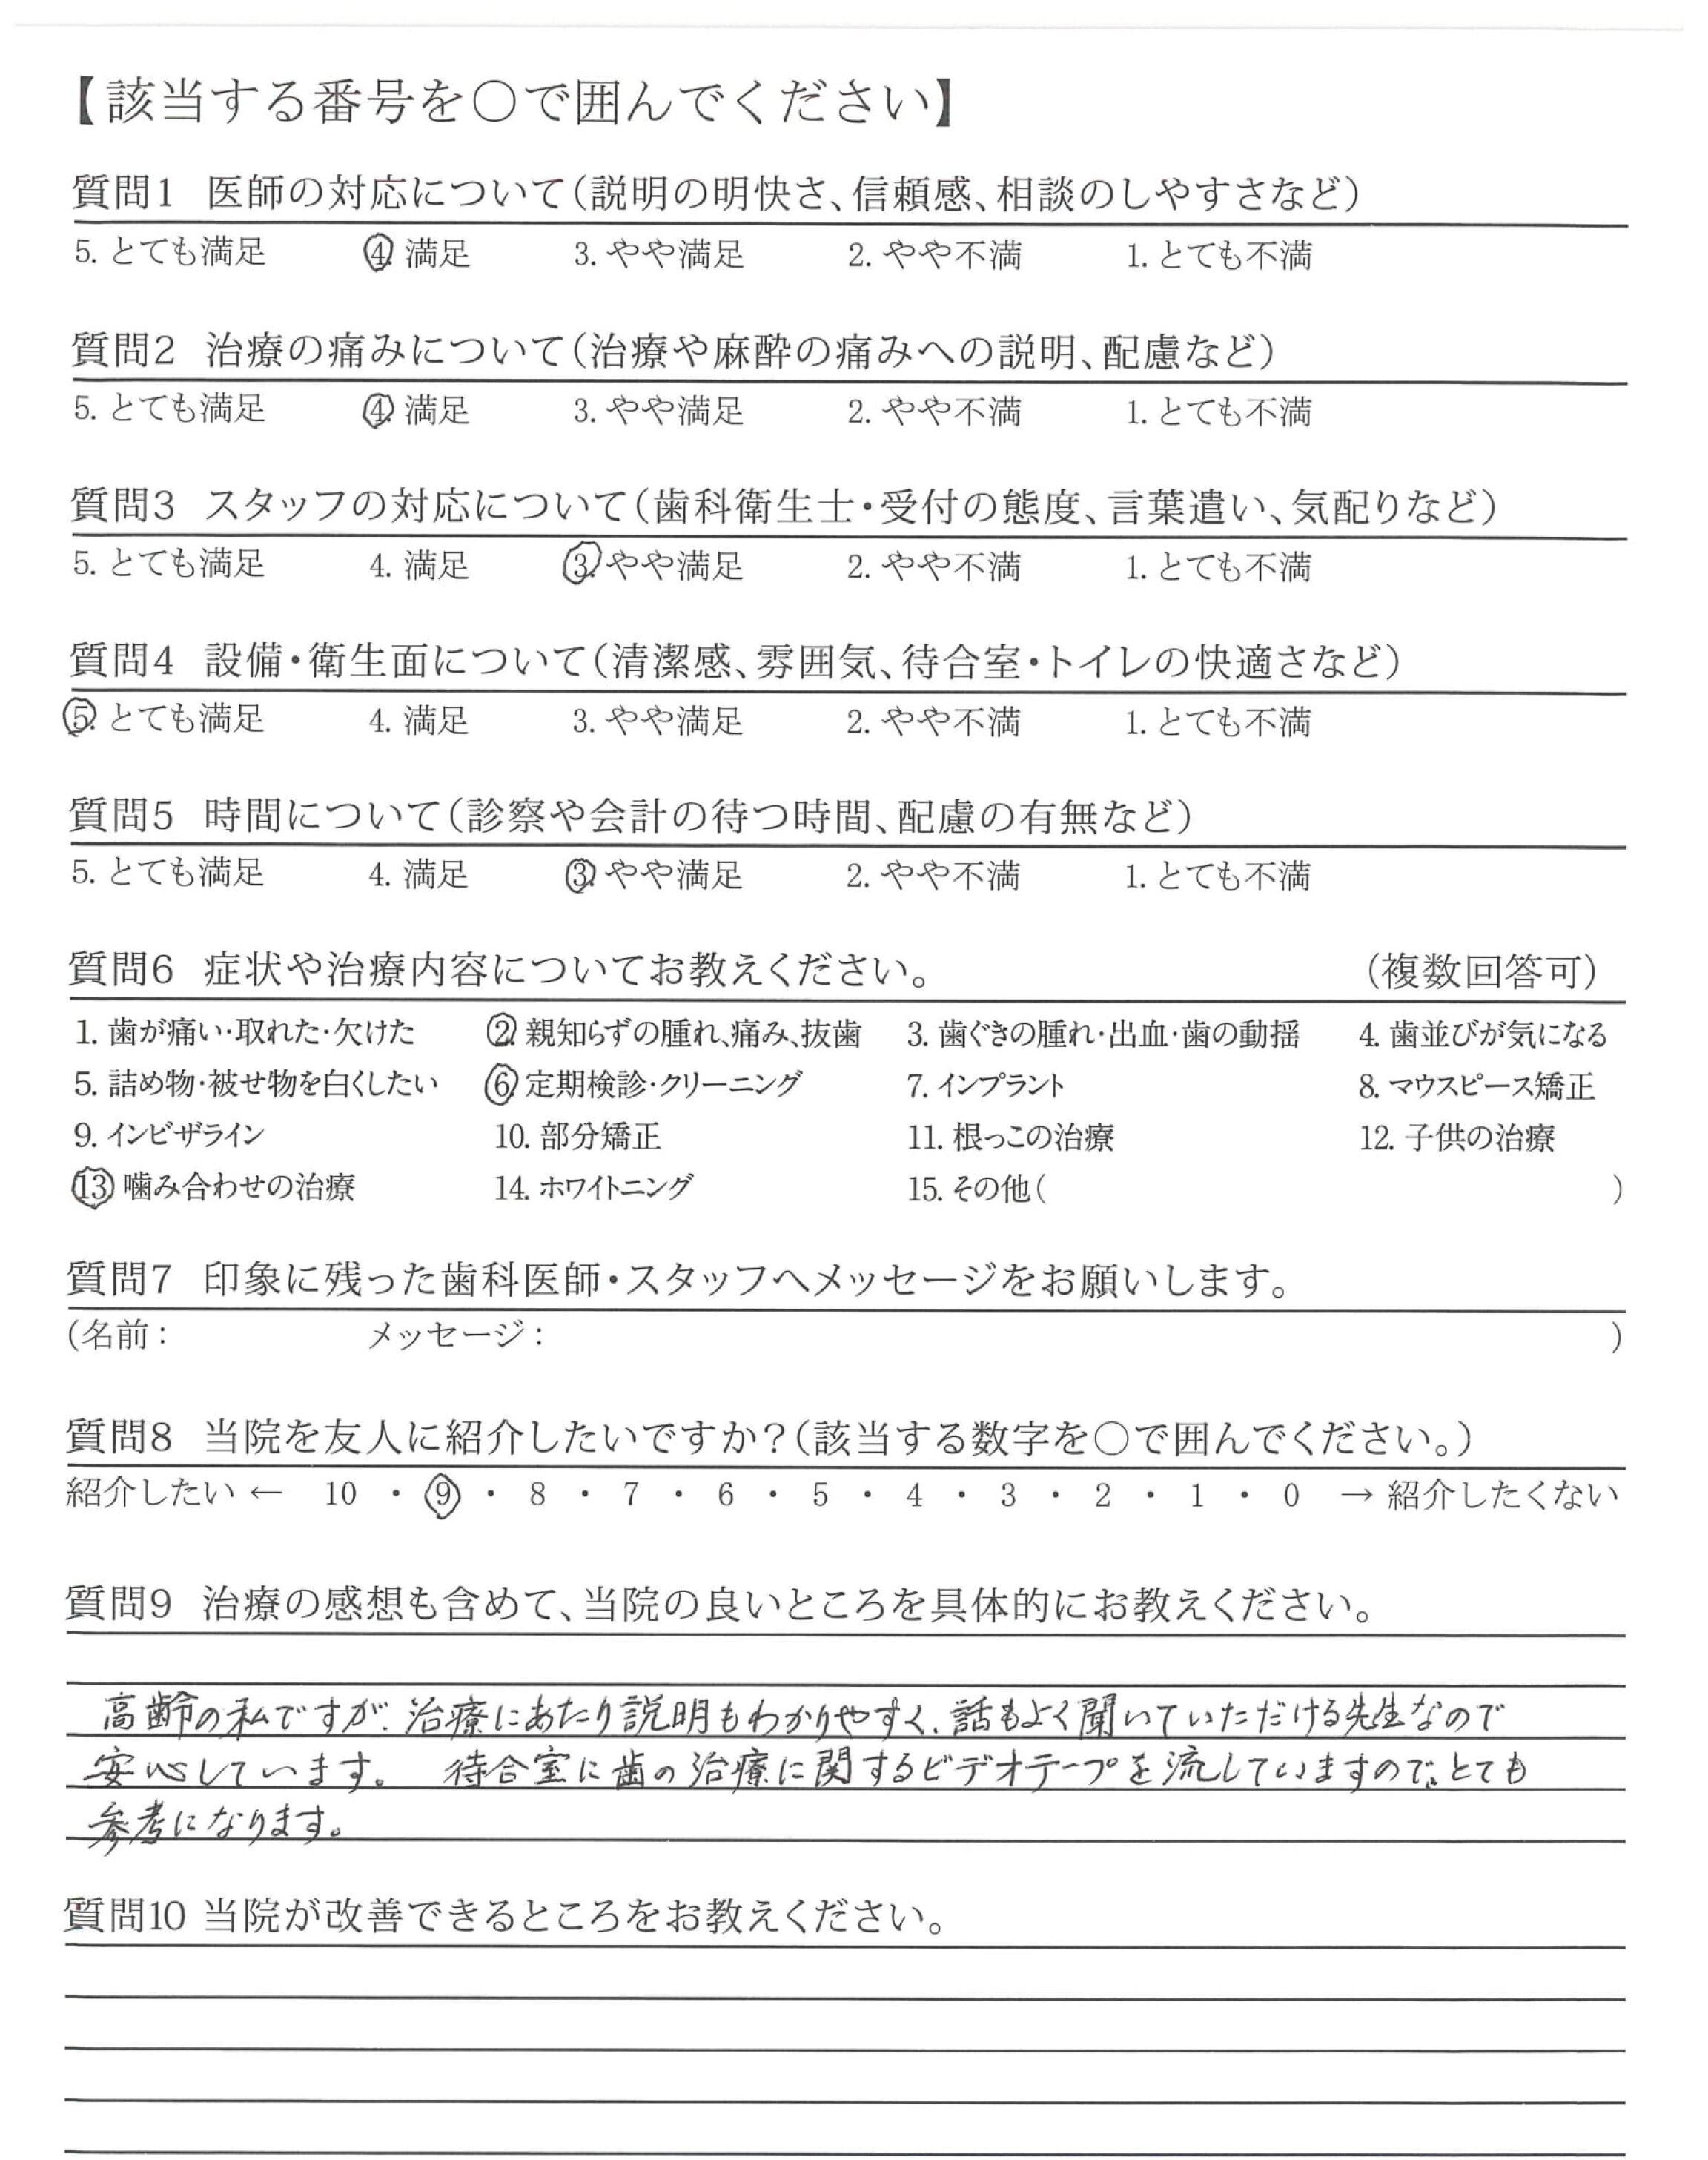 【該当する番号を〇で囲んでください】
質問1 医師の対応について（説明の明快さ、信頼感、相談のしやすさなど）
5. とても満足 4. 満足 3. やや満足 2. やや不満 1. とても不満
質問2 治療の痛みについて（治療や麻酔の痛みへの説明、配慮など）
5. とても満足 4. 満足 3. やや満足 2. やや不満 1. とても不満
質問3 スタッフの対応について（歯科衛生士・受付の態度、言葉遣い、気配りなど）
5. とても満足 4. 満足 3. やや満足 2. やや不満 1. とても不満
質問4 設備・衛生面について（清潔感、雰囲気、待合室・トイレの快適さなど）
5. とても満足 4. 満足 3. やや満足 2. やや不満 1. とても不満
質問5 時間について（診察や会計の待つ時間、配慮の有無など）
5. とても満足 4. 満足 3. やや満足 2. やや不満 1. とても不満
質問6 症状や治療内容についてお教えください。 （複数回答可）
1. 歯が痛い・取れた・欠けた 2. 親知らずの腫れ、痛み、抜歯 3. 歯ぐきの腫れ・出血・歯の動揺 4. 歯並びが気になる
5. 詰め物・被せ物を白くしたい 6. 定期検診・クリーニング 7. インプラント 8. マウスピース矯正
9. インビザライン 10. 部分矯正 11. 根っこの治療 12. 子供の治療
13. 噛み合わせの治療 14. ホワイトニング 15. その他（ ）
質問7 印象に残った歯科医師・スタッフへメッセージをお願いします。
（名前： メッセージ： ）
質問8 当院を友人に紹介したいですか？（該当する数字を〇で囲んでください。）
紹介したい ← 10 ・ 9 ・ 8 ・ 7 ・ 6 ・ 5 ・ 4 ・ 3 ・ 2 ・ 1 ・ 0 → 紹介したくない
質問9 治療の感想も含めて、当院の良いところを具体的にお教えください。
高齢の私ですが、治療にあたり説明もわかりやすく、話もよく聞いていただける先生なので
安心しています。 待合室に歯の治療に関するビデオテープを流していますので、とても
参考になります。
質問10 当院が改善できるところをお教えください。